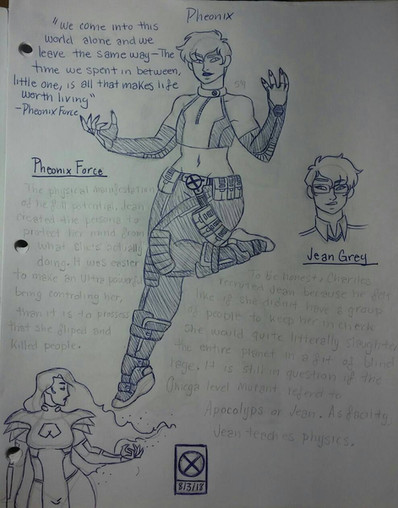 Pheonix
"We come into this
world alone and we
leave the same way—The
time we spent in between,
little one, is all that makes life
worth living"
-Pheonix Force
Pheonix Force
The physical manifestation
of her full potential. Jean
created the persona to
protect her mind from
what she's actually
doing. It was easier
to make an ultra powerful
being controling her,
than it is to process
that she fliped and
killed people.
Jean Grey
To be honest, Charles
recruited Jean because he felt
like if she didn't have a group
of people to keep her in check
she would quite litterally slaughter
the entire planet in a fit of blind
rage. It is still in question if the
Omega level mutant refers to
Apocolyps or Jean. As faculty,
Jean teaches physics.
8/3/18